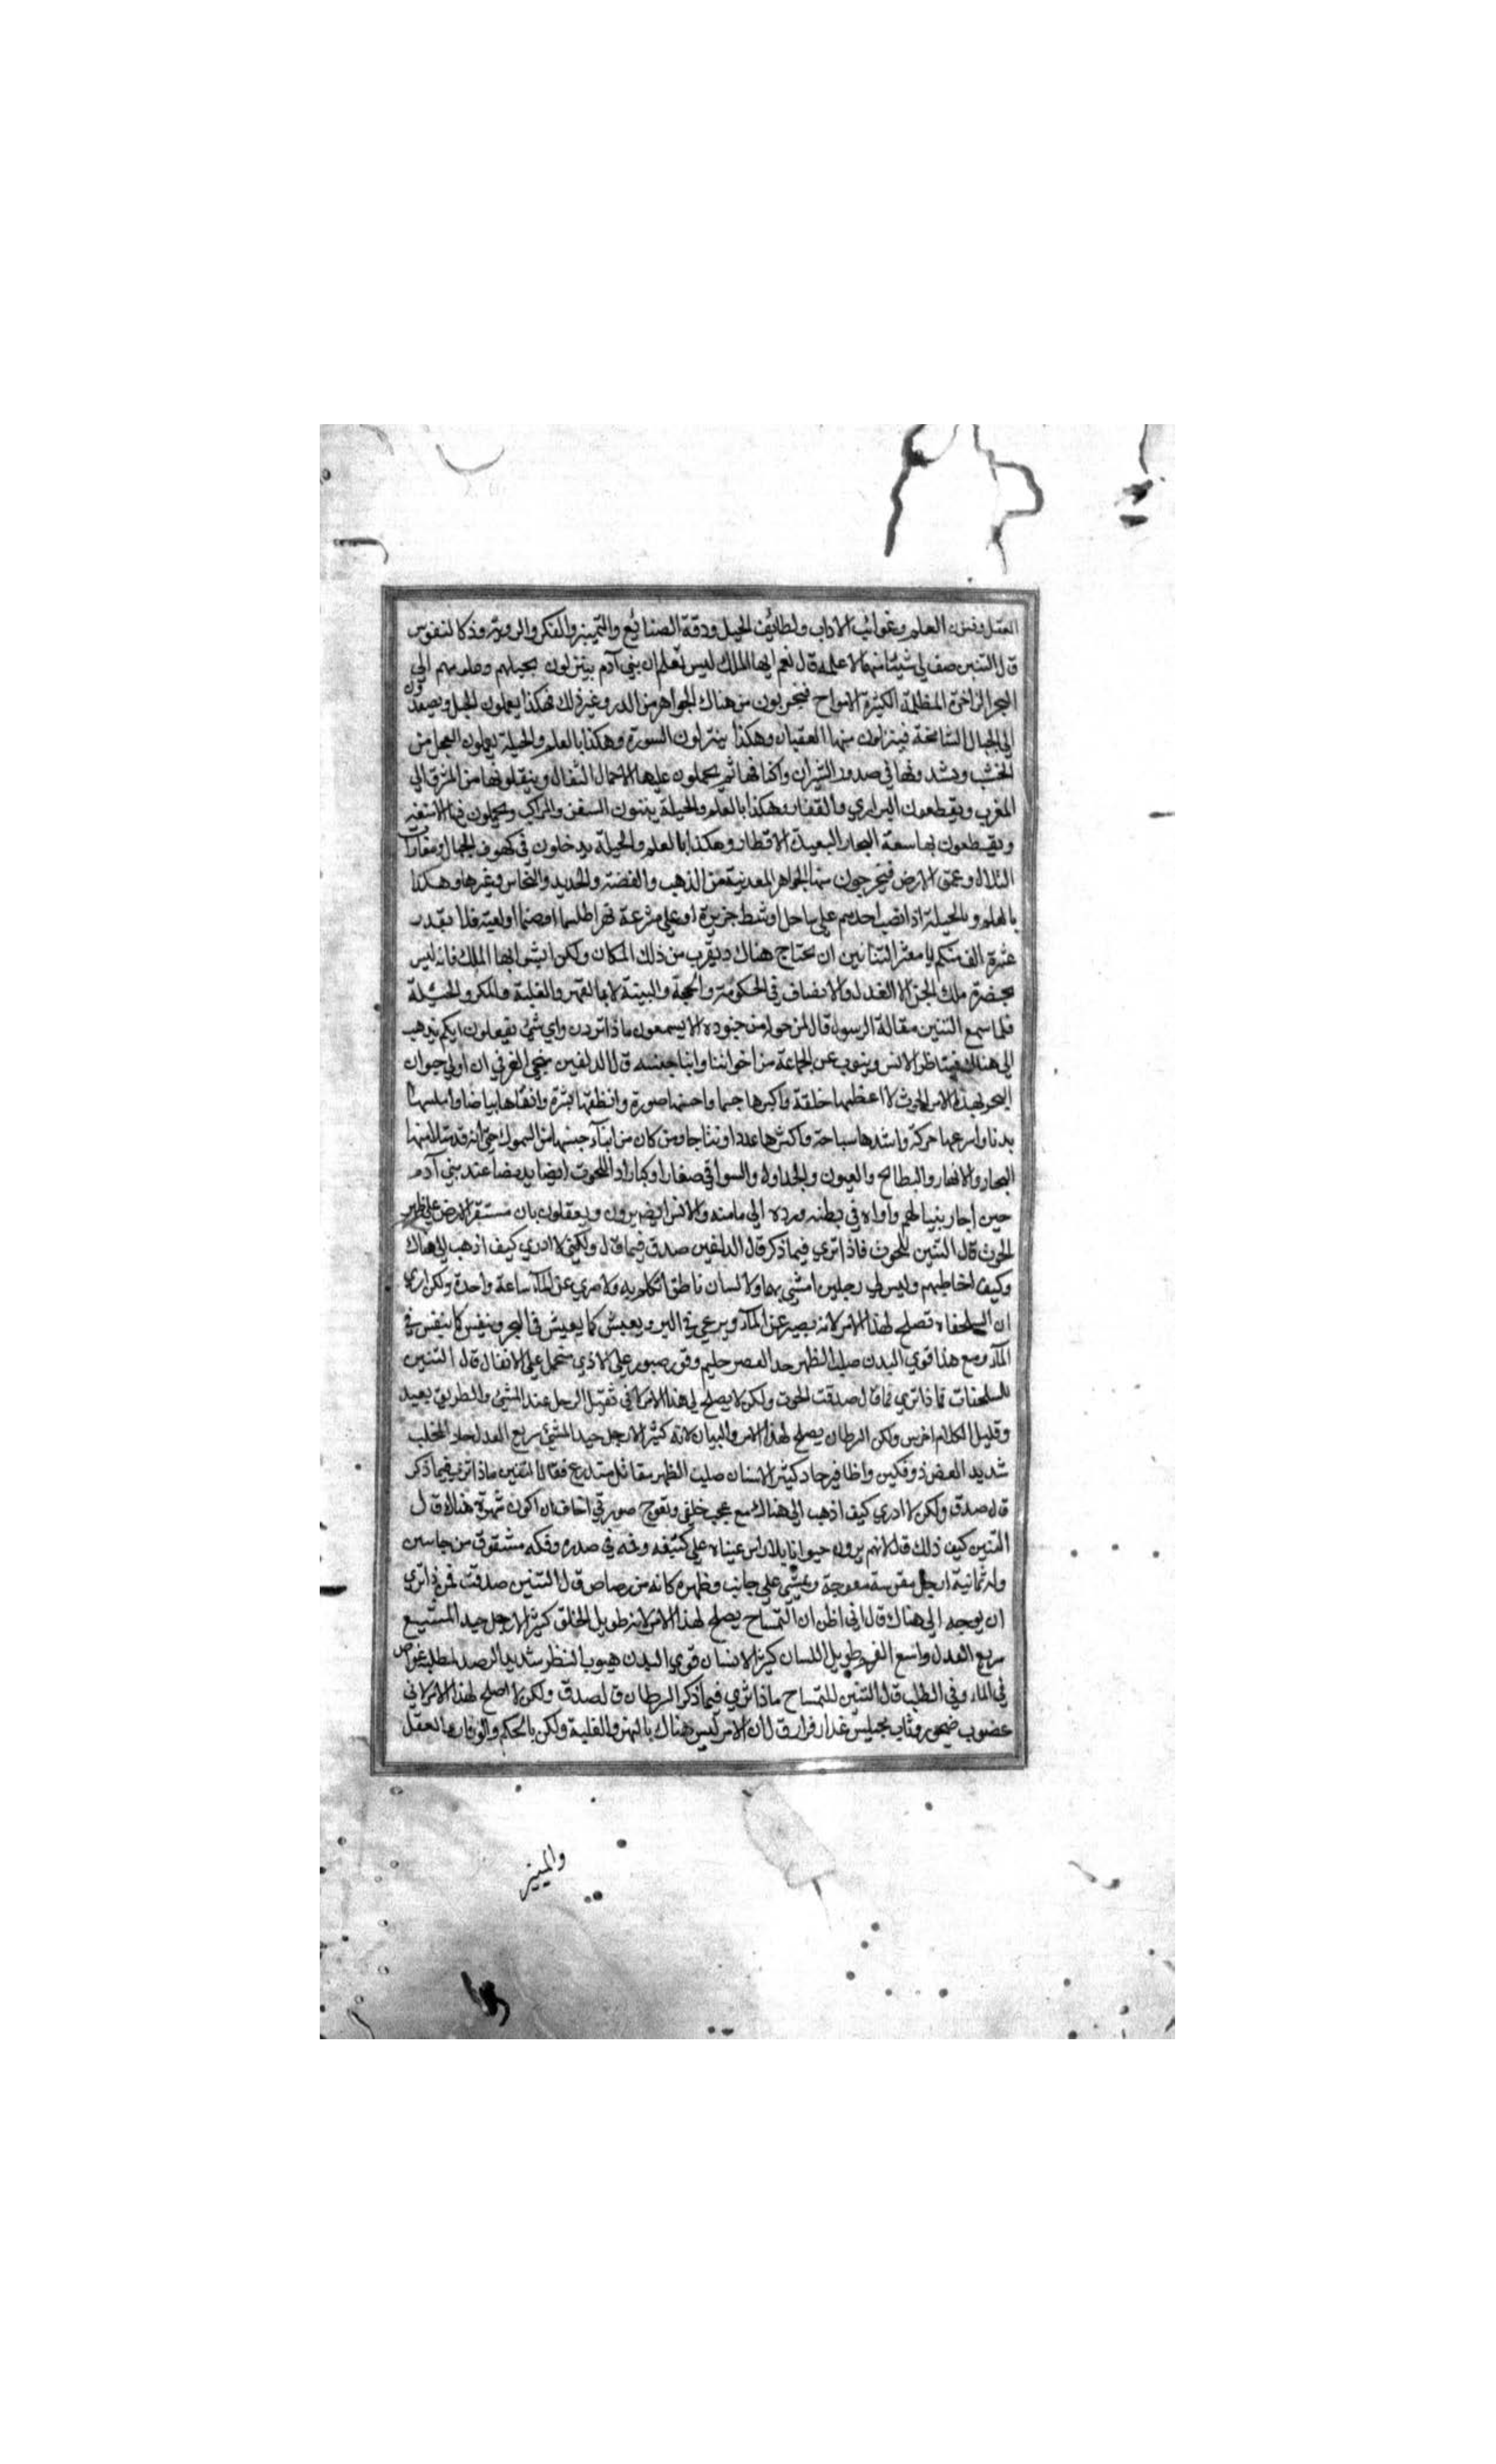 العقل وفنون العلم وغرائب الاداب ولطائف الحيل ودقة الصنائع والتمييز والفكر والروية وذكا النفوس
قال التنين صف لي شيئا منها لاعلمه قال نعم ايها الملك ليس تعلم ان بني آدم ينزلون بحيلهم وعلومهم الى
البحر الزاخرة المظلمة الكثيرة الامواج فيخرجون من هناك الجواهر من الدر وغير ذلك فهكذا يعملون الحيل ويصعدون
الى الجبال الشامخة فينزلون منها العقبان وهكذا ينزلون النسورة وهكذا بالعلم والحيلة يعملون العجل من
الخشب ويشدونها في صدور الثيران واكتافها ثم يحملون عليها الاحمال الثقال وينقلونها من المشرق الى
المغرب ويقطعون البراري والقفار وهكذا بالعلم والحيلة يبنون السفن والمراكب ويحملون فيها الامتعة
ويقطعون بها سعة البحار البعيدة الاقطار وهكذا بالعلم والحيلة يدخلون في كهوف الجبال ومغارات
التلال وعمق الارض فيخرجون منها الجواهر المعدنية من الذهب والفضة والحديد والنحاس وغيرها وهكذا
بالعلم وبالحيلة اذا نصب احدهم على ساحل او شط جزيرة او على مشرعة نهر طلسما او صنما او لعبة فلا يقدر
عشرة الف منكم يا معشر التنانين ان يحتاج هناك ويقرب من ذلك المكان ولكن ابشر ايها الملك فانه ليس
بحضرة ملك الجن الا العدل والانصاف في الحكومة والحجة والبينة لا بالقهر والغلبة والمكر والحيلة
فلما سمع التنين مقالة الرسول قال لمن حوله من جنوده الا يسمعون ماذا ترون واي شئ يفعلون ايكم يذهب
الى هناك فيناظر الانس وينوب عن الجماعة من اخواننا وابنا جنسه قال الدلفين منجي الغرقي ان اولى حيوان
البحر بهذا الامر الحوث لا اعظمها خلقة واكبرها جسما واحسنها صورة وانظفها بشرة وانقاها بياضا واملسها
بدنا واسرعها حركة واشدها سباحة واكثرها عددا ونتاجا ومن كان من ابنآء جنسها من السموك حتى انه قد امتلا منها
البحار والانهار والبطائح والعيون والجداول والسواقي صغارا وكبارا وللحوت ايضا يد بيضا عند بني آدم
حين اجار نبيا لهم واواه في بطنه ورده الى مامنه والانس ايضا يرون ويعقلون بان مستقر الارض على ظهر
الحوث قال التنين للحوث فاذا تري فيما ذكر قال الدلفين صدق فيما قال ولكني لا ادري كيف اذهب الى هناك
وكيف اخاطبهم وليس لي رجلين امشي بهما ولا لسان ناطق اتكلم به ولا صبري عن المآء ساعة واحدة ولكن اري
ان السلحفاه تصلح لهذا الامر لانه يصبر عن المآء ويرعي في البر ويعيش كما يعيش في البحر ويتنفس كما يتنفس في
المآء ومع هذا قوي البدن صلب الظهر جيد الصبر حليم وقور صبور على الاذي متحمل على الاثقال قال التنين
للسلحفات فماذا تري فقال صدقت الحوت ولكن لا يصلح لي هذا الامر لاني ثقيل الرجل عند المشي والطريق بعيد
وقليل الكلام اخرس ولكن السرطان يصلح لهذا الامر والبيان لانه كثير الارجل جيد المشي سريع العدل حاد المخلب
شديد العض ذو فكين واظافير حاد كثير الاسنان صليب الظهر مقاتل متدرع فقال التنين ماذا تري فيما ذكر
قال صدق ولكن لا ادري كيف اذهب الى هناك مع عجيب خلقي وتعوج صورتي اخاف ان اكون شهرة هناك قال
التنين كيف ذلك قال لانهم يرون حيوانا بلا راس عيناه على كتفه وفمه في صدره وفكه مشقوق من جانبين
وله ثمانية ارجل مقوسة معوجة ويمشي على جانب وظهره كانه من رصاص قال التنين صدقت فمن ذا تري
ان يوجه الى هناك قال اني اظن ان التمساح يصلح لهذا الامر لانه طويل الخلق كثير الارجل جيد المشي
سريع العدل واسع الفم طويل اللسان كثير الاسنان قوي البدن هيوب المنظر شديد الرصد لمطلبه غواص
في الماء وفي الطلب قال التنين للتمساح ماذا تري فيما ذكر السرطان قال صدق ولكن لا اصلح لهذا الامر لاني
غضوب ضجور وثاب مختلس غدار فرار قال ان الامر ليس هناك بالقهر والغلبة ولكن بالحكم والوقار والعقل
والتمييز